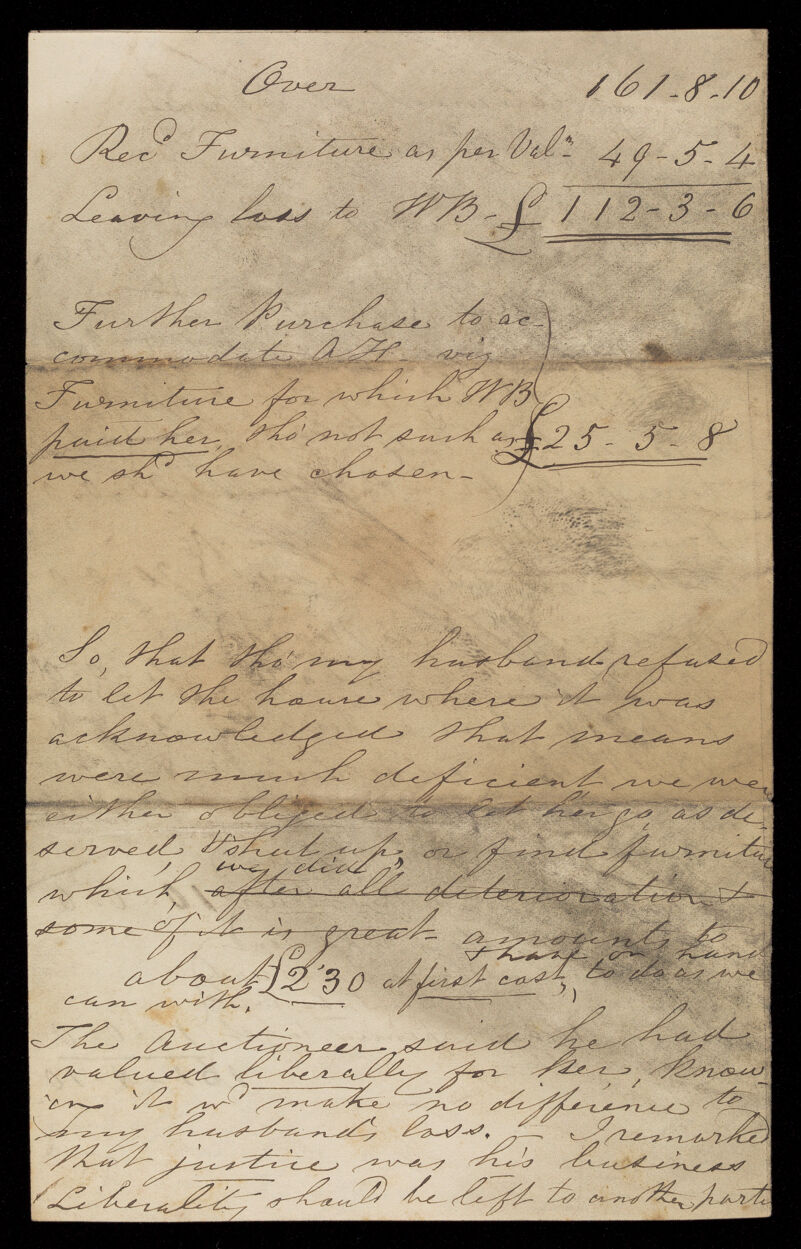 Over 161-8-10
Recd Furniture as per Valn- 49-5-4
Leaving loss to WB- £112-3-6
Further Purchase to ac-
commodate AH- viz
Furniture for which WB
paid her, tho' not such as £25-5-8
we shd have chosen-
So, that tho' my husband refused
to let the house where it was
acknowledged that means
were much deficient, we were
either obliged to let her go, as de-
served, & shut up, or find furniture
we did
which, after all deterioration &
some of it is great- amounts to
& have on hand
about £230 at first cost, to do as we
can with.
The Auctioneer said he had
valued liberally for her, know-
ing it wd make no difference to
my husbands loss. I remarked
that justice was his business
Liberality should be left to another party